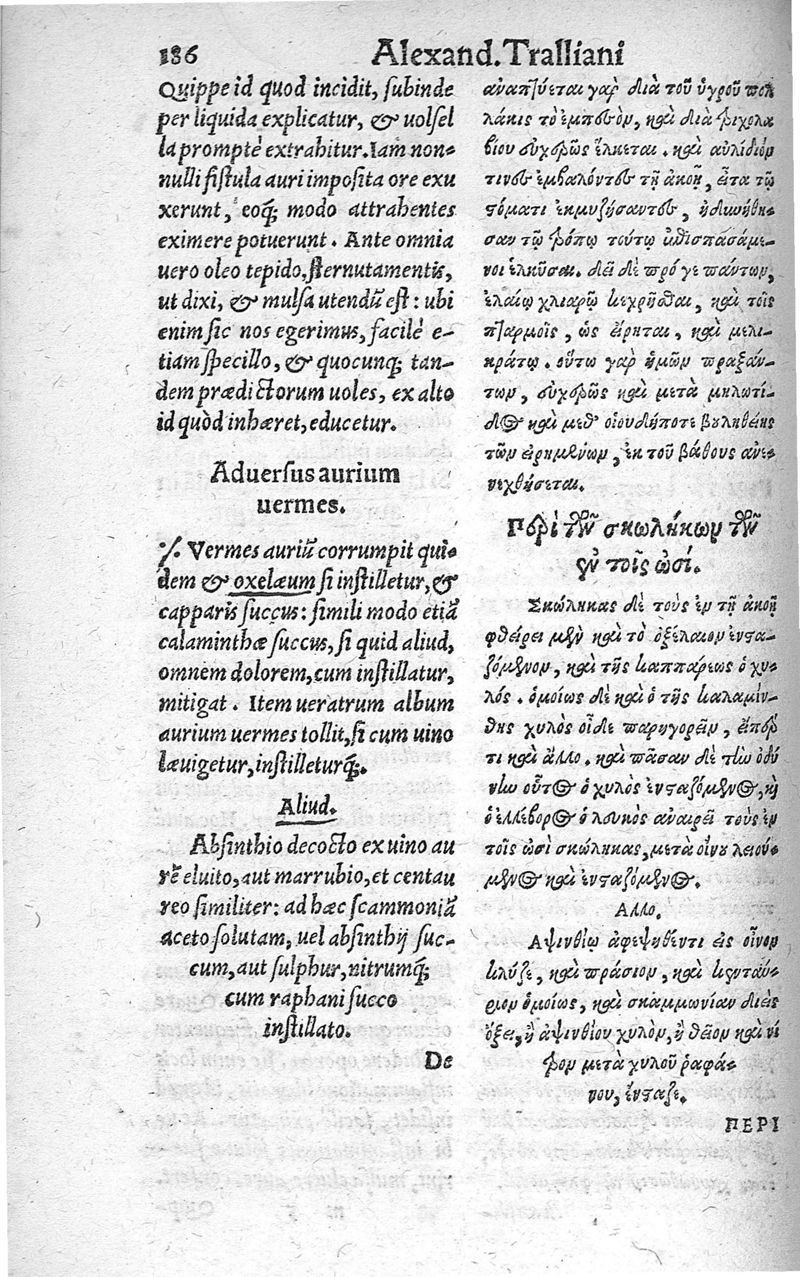 186
Alexand. Tralliani
Quippe id quod incidit, subinde
per liquida explicatur, & uolsel
la promptè extrahitur. Iam non-
nulli fistula auri imposita ore exu
xerunt, eoq́; modo attrahentes
eximere potuerunt. Ante omnia
uero oleo tepido, sternutamentis,
ut dixi, & mulsa utendũ est: ubi
enim sic nos egerimus, facilè e-
tiam specillo, & quocunq; tan-
dem prædictorum uoles, ex alto
id quòd inhæret, educetur.
Aduersus aurium
uermes.
⁒ Vermes auriũ corrumpit qui-
dem & oxelæum si instilletur, &
capparis succus: simili modo etiã
calaminthæ succus, si quid aliud,
omnem dolorem, cum instillatur,
mitigat. Item ueratrum album
aurium uermes tollit, si cum uino
læuigetur, instilleturq́;.
Aliud.
Absinthio decocto ex uino au
rẽ eluito, aut marrubio, et centau
reo similiter: ad hæc scammoniã
aceto solutam, uel absinthij suc-
cum, aut sulphur, nitrumq́;
cum raphani succo
instillato.
De
αναπτύεται γαρ διὰ τοῦ ὑγροῦ πολ
λάκις τὸ ἐμπεσὸν, καὶ διὰ τριχολα
βίου εὐχερῶς ἕλκεται. καὶ αὐλίδιόν
τινες ἐμβαλόντες τῇ ἀκοῇ, εἶτα τῷ
στόματι ἐκμυζήσαντες, ἠδυνήθη-
σαν τῷ τρόπῳ τούτῳ ἐπισπασάμε-
νοι ἑλκῦσαι. δεῖ δὲ πρό γε πάντων,
ἐλαίῳ χλιαρῷ κεχρῆσθαι, καὶ τοῖς
πταρμοῖς, ὡς εἴρηται, καὶ μελι-
κράτῳ. οὕτω γαρ ἡμῶν πραξάν-
των, εὐχερῶς καὶ μετὰ μηλωτί-
δος καὶ μεθ' οἱουδήποτε βουληθείης
τῶν εἰρημένων, ἐκ τοῦ βάθους ἀνε-
νεχθήσεται.
Περὶ τῶν σκωλήκων τῶν
ἐν τοῖς ὠσί.
Σκώληκας δὲ τοὺς ἐν τῇ ἀκοῇ
φθείρει μὲν καὶ τὸ ὀξέλαιον ἐνστα-
ζόμενον, καὶ τῆς καππάρεως ὁ χυ-
λός. ὁμοίως δὲ καὶ ὁ τῆς καλαμίν-
θης χυλὸς οἶδε παρηγορεῖν, εἴπερ
τι καὶ ἄλλο. καὶ πᾶσαν δὲ τὴν ὀδύ
νην οὗτος ὁ χυλὸς ἐνσταζόμενος, καὶ
ὁ ἑλλέβορος ὁ λευκὸς ἀναιρεῖ τοὺς ἐν
τοῖς ὠσὶ σκώληκας, μετὰ οἴνου λειού-
μενος καὶ ἐνσταζόμενος.
Αλλο.
Αψινθίῳ ἀφεψηθέντι εἰς οἶνον
κλύζε, καὶ πράσιον, καὶ κενταύ-
ριον ὁμοίως, καὶ σκαμμωνίαν διεὶς
ὄξει, ἢ ἀψινθίου χυλὸν, ἢ θεῖον καὶ νί
τρον μετὰ χυλοῦ ῥαφά-
νου, ἔνσταζε.
ΠΕΡΙ